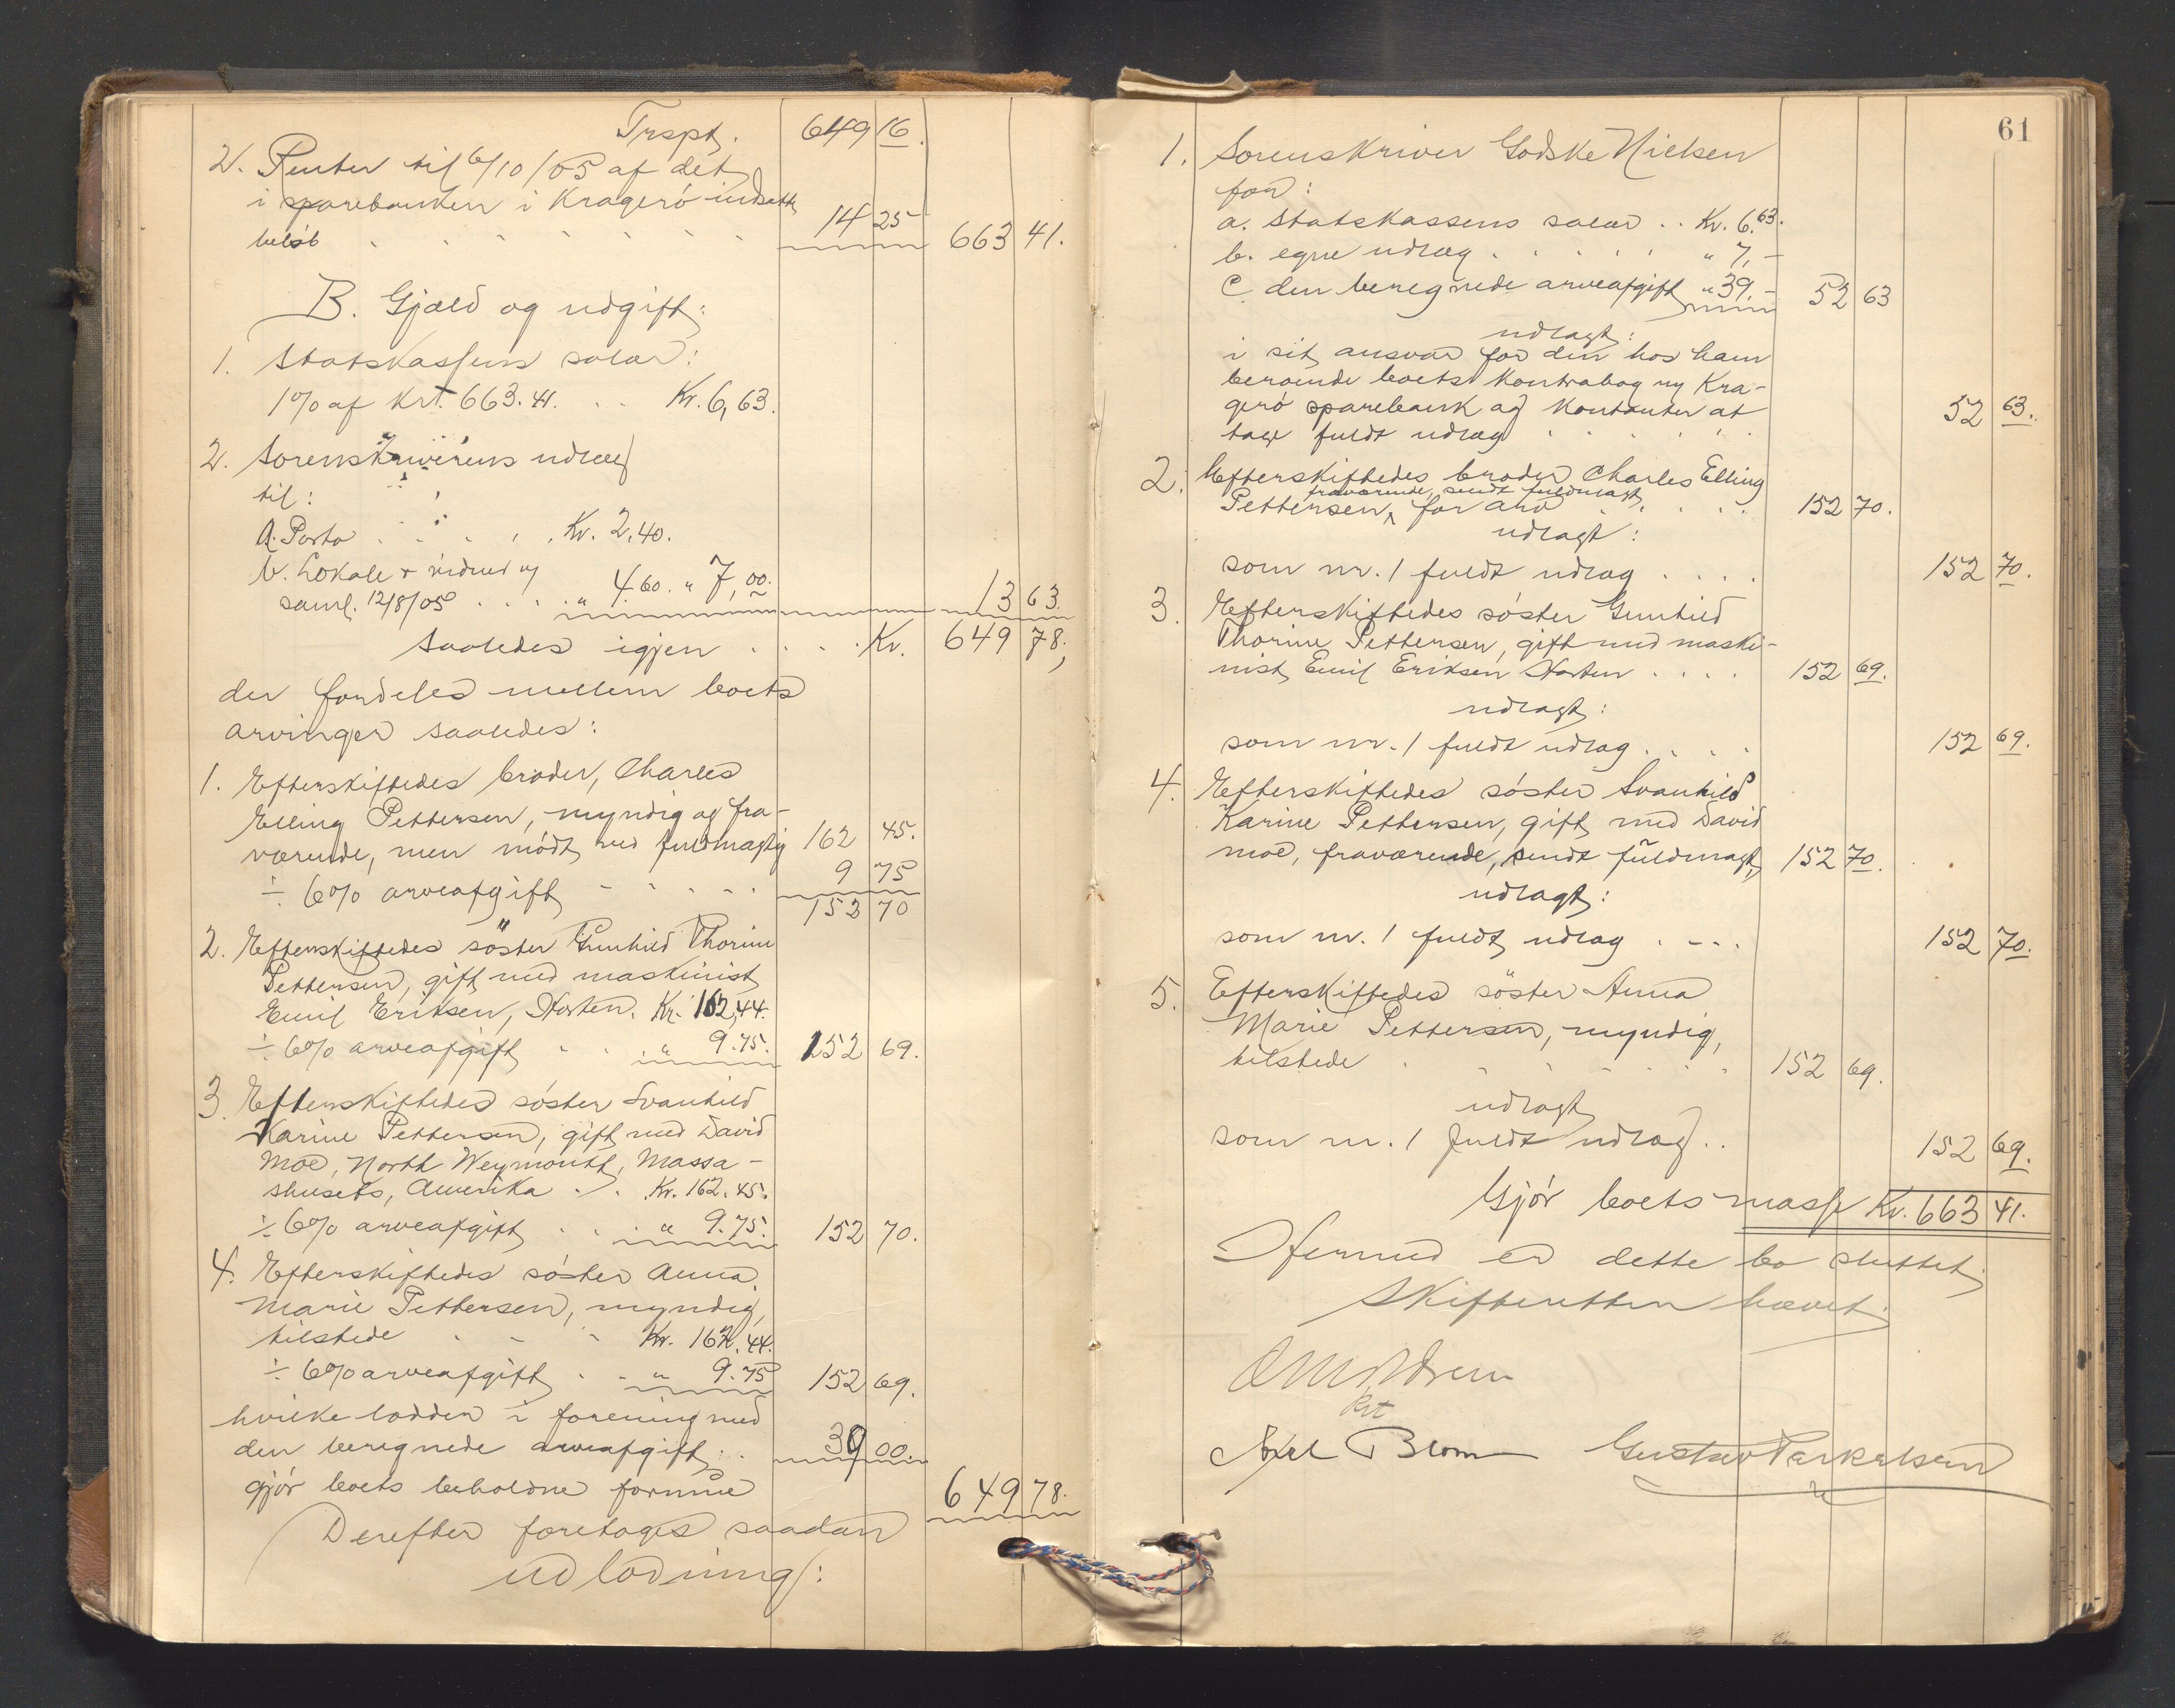 Trspt. 649 16.
2. Renter til 6/10/05 af det
i sparebanken i Kragerø indsatte
beløb . . . . . . . 14 25 663 41.
B. Gjæld og udgift:
1. Statskassens salær:
1% af krt. 663.41. . . Kr. 6,63.
2. Sorenskriverens udlæg
til:
a. Porto . . . . . Kr. 2.40.
b. Lokale + vidner ny
saml. 12/8/05 . . . . " 4.60. " 7,00. 13 63.
Saaledes igjen . . . . Kr. 649 78.,
der fordeles mellem boets
arvinger saaledes:
1. Efterskiftedes broder, Charles
Elling Pettersen, myndig og fra-
værende, men mødt ved fuldmægtig 162 45.
÷ 6% arveafgift - - - . . 9 75
152 70
2. Efterskiftedes søster Gunhild Thorine
Pettersen, gift med maskinist
Emil Eriksen, Horten. Kr. 162,44.
÷ 6% arveafgift . . . " 9.75. 152 69.
3. Efterskiftedes søster Svanhild
Karine Pettersen, gift med David
Moe, North Weymouth, Massa-
shusets, Amerika . . . Kr. 162.45.
÷ 6% arveafgift . . . " 9.75. 152 70.
4. Efterskiftedes søster Anna
Marie Pettersen, myndig,
tilstede . - - Kr. 162.44.
÷ 6% arveafgift . . " 9.75 152 69.
hvilke lodder i forening med
den beregnede arveafgift: . . 39 00.
gjør boets beholdne formue 649 78.
Derefter foretoges saadan
udlodning:
61
1. Sorenskriver Godske Nielsen
for:
a. Statskassens salær . . Kr. 6.63.
b. egne udlæg . . . . . . " 7,-
c den beregnede arveafgift " 39.- 52 63
udlagt:
i sit ansvar for den hos ham
beroende boets kontrabog ny Kra-
gerø sparebank og kontanter at
tage fuldt udlæg . . . . . . 52 63.
2. Efterskiftedes broder Charles Elling
fraværende, sendt fuldmagt,
Pettersen, for arv . . . . . 152 70.
udlagt:
som nr. 1 fuldt udlæg . . . . 152 70.
3. Efterskiftedes søster Gunhild
Thorine Pettersen, gift med maski-
nist Emil Eriksen Horten . . . . 152 69.
udlagt:
som nr. 1 fuldt udlæg . . . . 152 69.
4. Efterskiftedes søster Svanhild
Karine Pettersen, gift med David
Moe, fraværende, sendt fuldmagt, 152 70.
udlagt:
som nr. 1 fuldt udlæg . - - . 152 70.
5. Efterskiftedes søster Anna
Marie Pettersen, myndig,
tilstede . . . . . . . 152 69.
udlagt
som nr. 1 fuldt udlæg . . 152 69.
Gjør boets masse Kr. 663 41.
Hermed er dette bo sluttet.
Skifteretten hævet.
Axel Blom Gustav Terkelsen